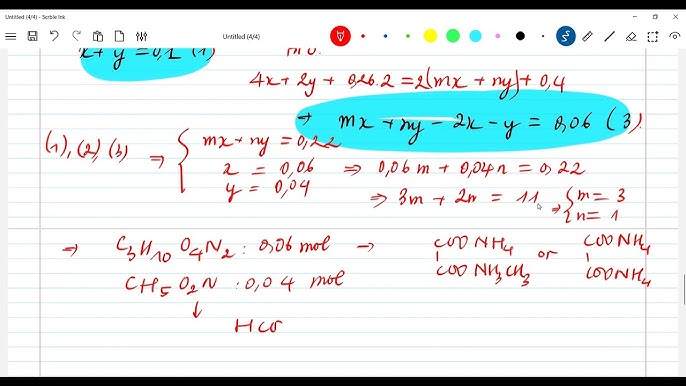 Untitled (4/4) - Scrble Ink
Untitled (4/4)
x + y = 0,1 (1)
4x + 2y + 0,26.2 = 2(mx + ny) + 0,4
→ mx + ny - 2x - y = 0,06 (3).
(1), (2), (3) ⇒ { mx + ny = 0,22
x = 0,06 ⇒ 0,06m + 0,04n = 0,22
y = 0,04
⇒ 3m + 2n = 11 ⇒ { m = 3
n = 1
→ C3H10O4N2 : 0,06 mol → COONH4 or COONH4
COONH3CH3 COONH4
CH5O2N : 0,04 mol
↓
HCO